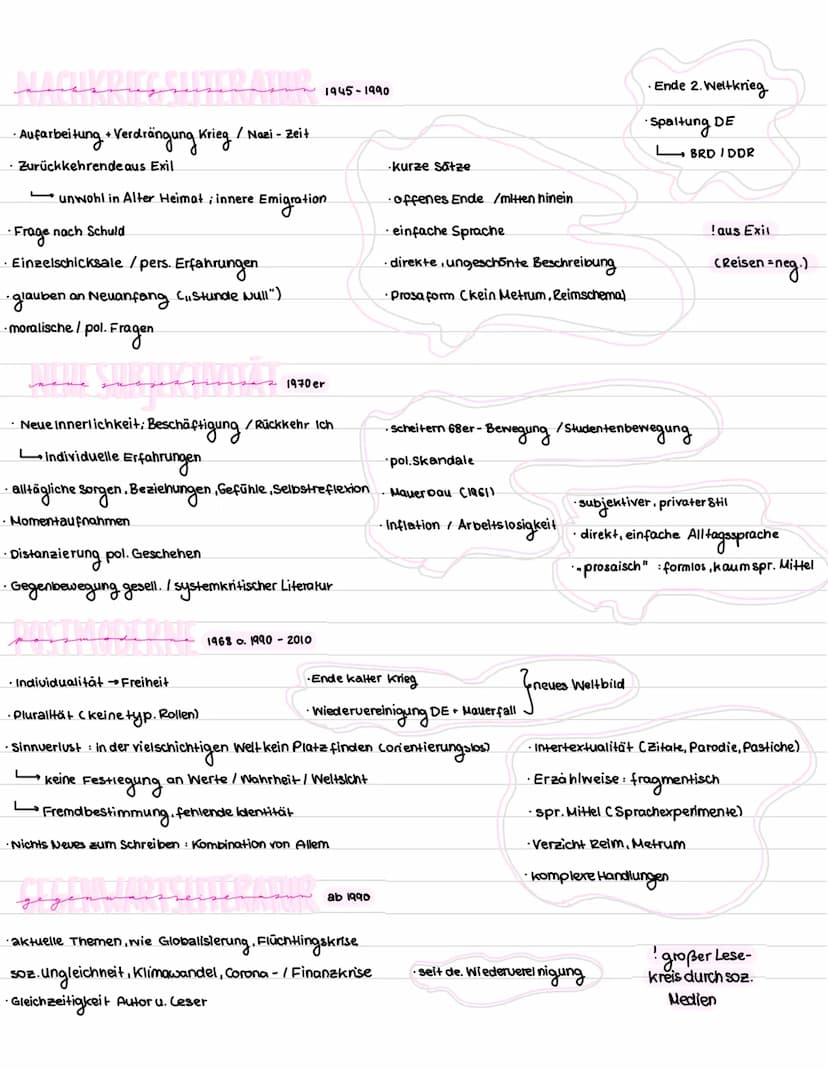 NACHKRIEGSLITERATUR 1945-1990
· Ende 2. Weltkrieg
· Spaltung DE
↳ BRD / DDR
· Aufarbeitung + Verdrängung Krieg / Nazi-Zeit
· Zurückkehrende aus Exil
↳ unwohl in Alter Heimat ; innere Emigration
· Frage nach Schuld
· Einzelschicksale / pers. Erfahrungen
· glauben an Neuanfang („Stunde Null")
· moralische / pol. Fragen
· kurze Sätze
· offenes Ende / mitten hinein
· einfache Sprache
· direkte, ungeschönte Beschreibung
· Prosaform (kein Metrum, Reimschema)
! aus Exil
(Reisen = neg.)
NEUE SUBJEKTIVITÄT 1970er
· Neue Innerlichkeit; Beschäftigung / Rückkehr Ich
↳ Individuelle Erfahrungen
· alltägliche Sorgen, Beziehungen, Gefühle, Selbstreflexion
· Momentaufnahmen
· Distanzierung pol. Geschehen
· Gegenbewegung gesell. / systemkritischer Literatur
· scheitern 68er-Bewegung / Studentenbewegung
· pol. Skandale
· Mauerbau (1961)
· Inflation / Arbeitslosigkeit
· subjektiver, privater Stil
· direkt, einfache Alltagssprache
· „prosaisch" : formlos, kaum spr. Mittel
POSTMODERNE 1968 o. 1990 - 2010
· Individualität → Freiheit
· Pluralität (keine typ. Rollen)
· Ende kalter Krieg
· Wiedervereinigung DE + Mauerfall
} neues Weltbild
· Sinnverlust : in der vielschichtigen Welt kein Platz finden (orientierungslos)
↳ keine Festlegung an Werte / Wahrheit / Weltsicht
↳ Fremdbestimmung, fehlende Identität
· Nichts Neues zum Schreiben : Kombination von Allem
· Intertextualität (Zitate, Parodie, Pastiche)
· Erzählweise : fragmentisch
· spr. Mittel (Sprachexperimente)
· Verzicht Reim, Metrum
· komplexe Handlungen
GEGENWARTSLITERATUR ab 1990
· aktuelle Themen, wie Globalisierung, Flüchtlingskrise
soz. ungleichheit, Klimawandel, Corona- / Finanzkrise
· Gleichzeitigkeit Autor u. Leser
· seit de. Wiedervereinigung
! großer Lese-
kreis durch soz.
Medien